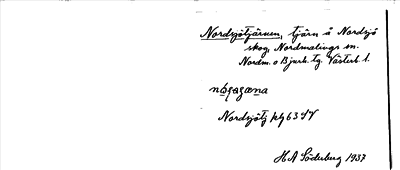 Nordsjötjärnen, tjärn å Nordsjö
skog, Nordmalings sn.
Nordm. o Bjurh. tg. Västerb. l.
Nordsjötj
H A Söderberg 1937